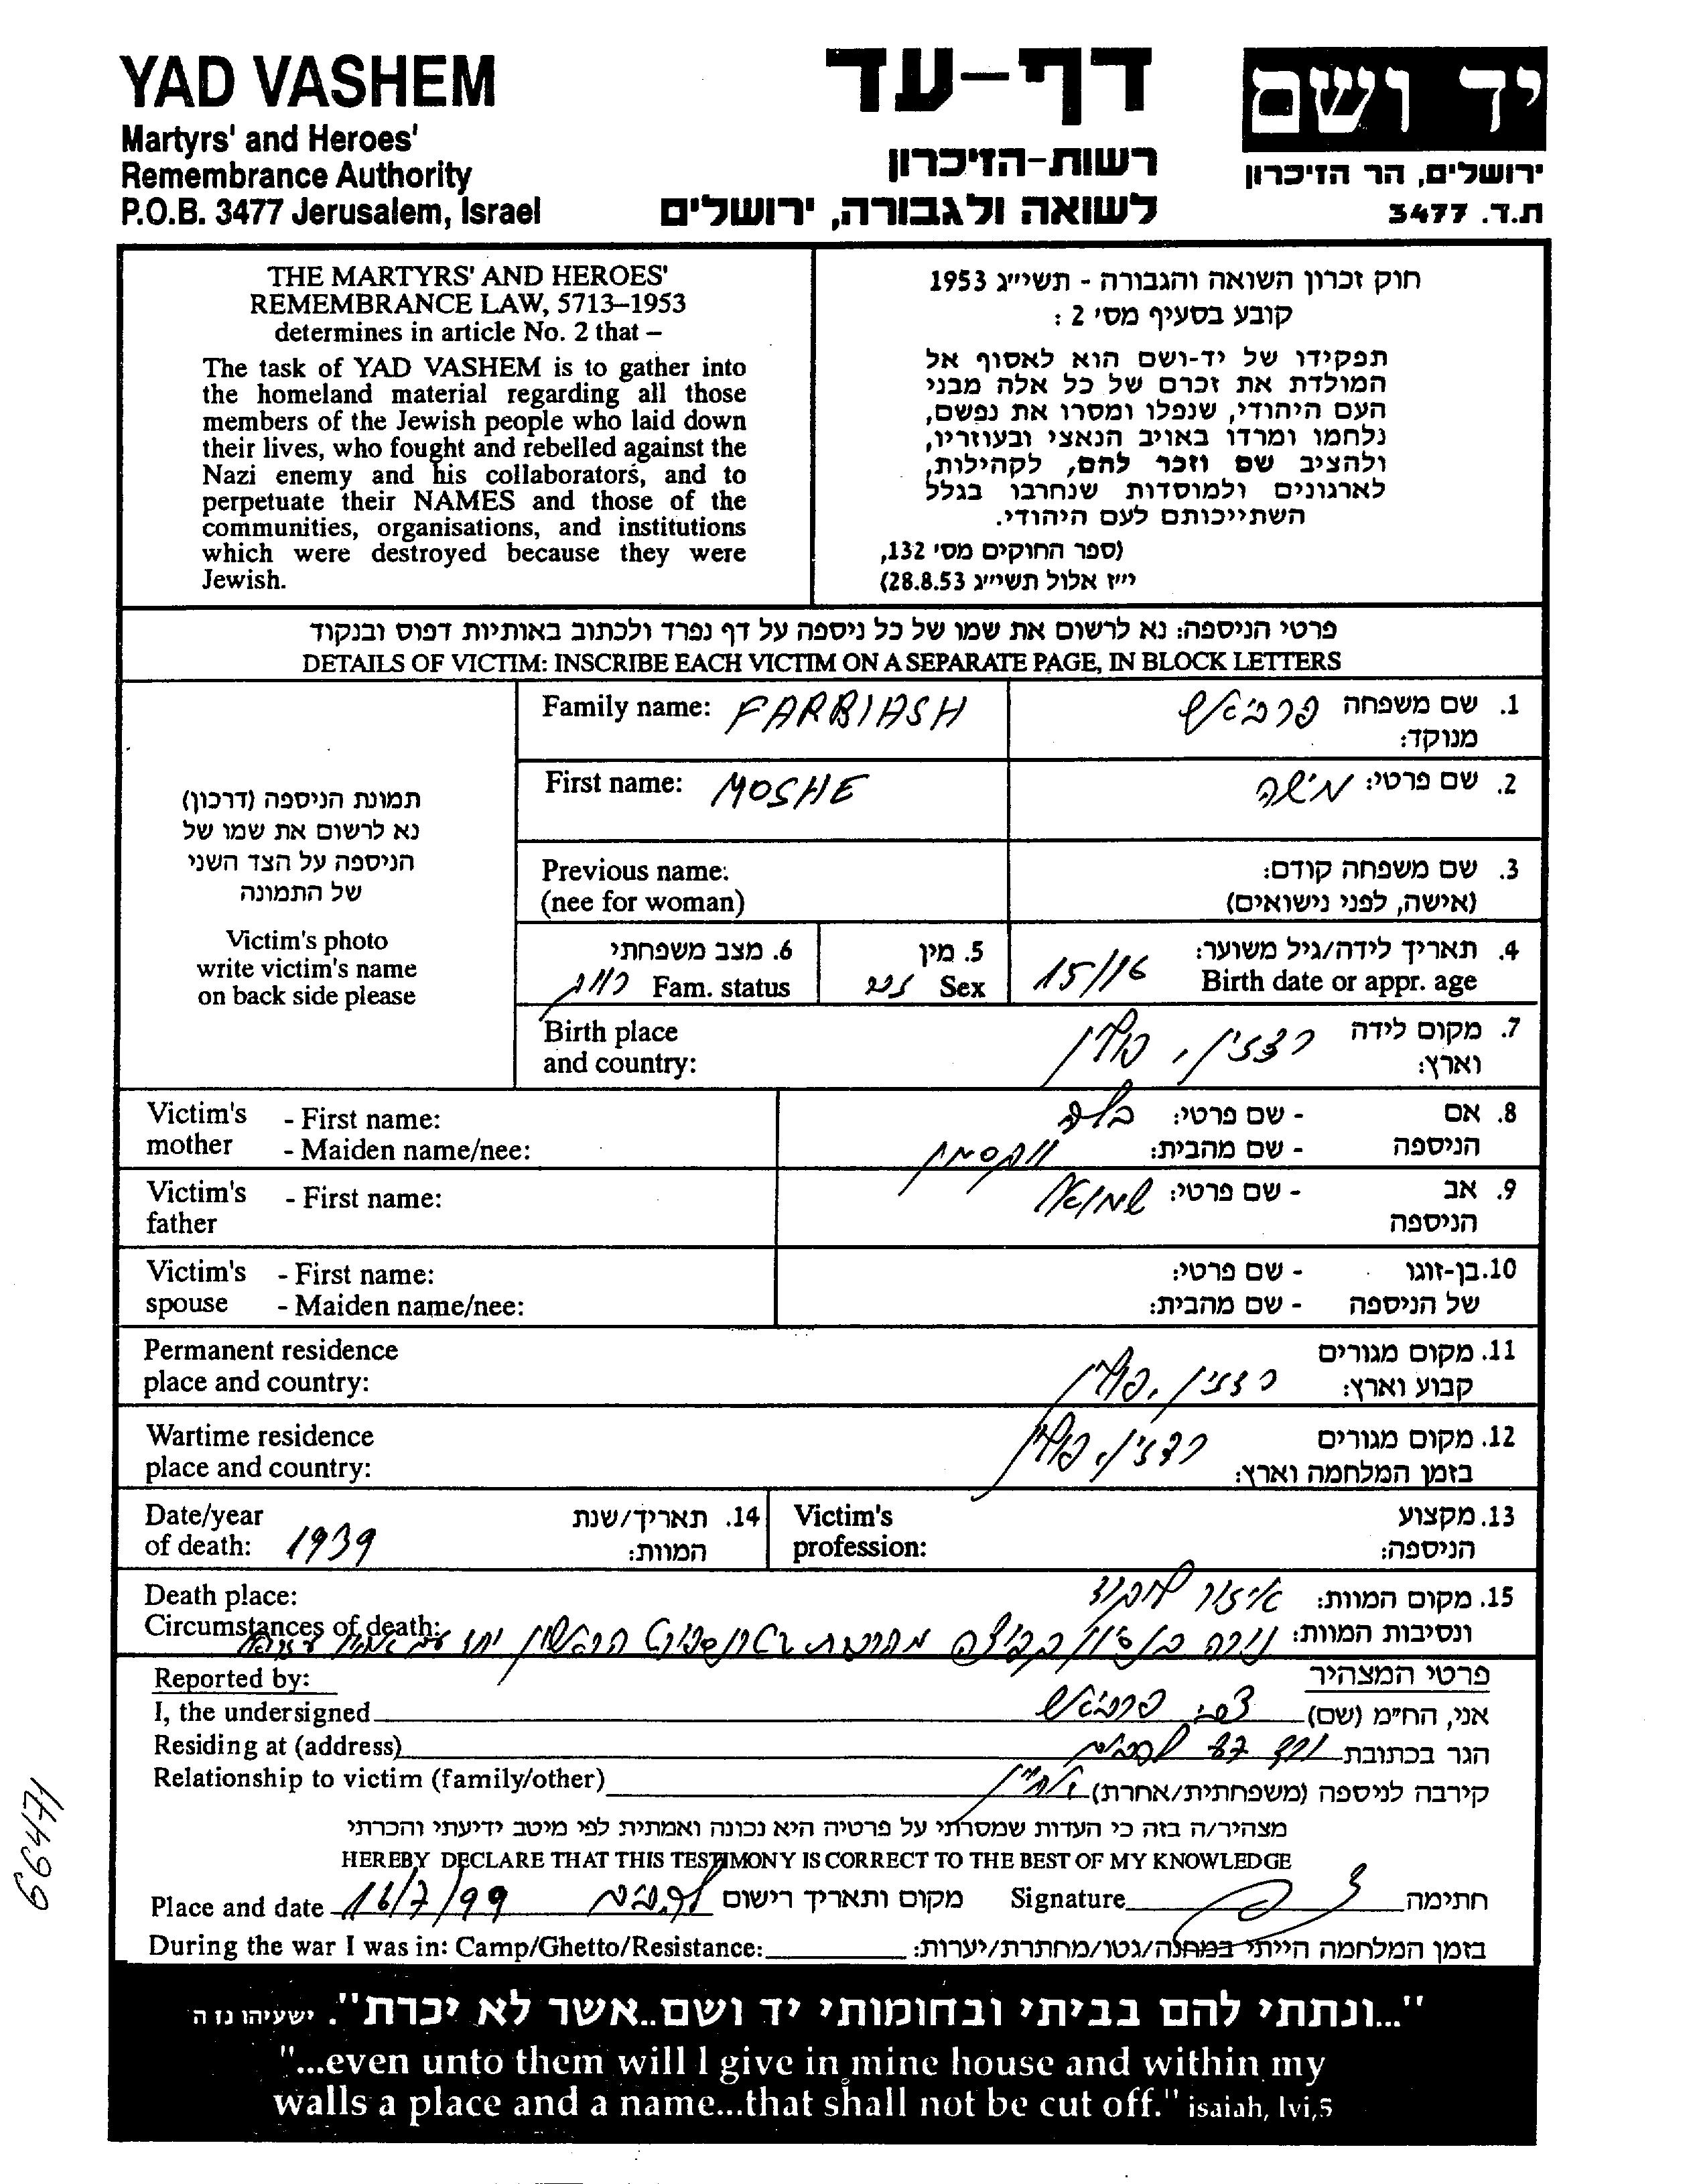 YAD VASHEM
Martyrs' and Heroes'
Remembrance Authority
P.O.B. 3477 Jerusalem, Israel
דף-עד
רשות-הזיכרון
לשואה ולגבורה, ירושלים
יד ושם
ירושלים, הר הזיכרון
ת.ד. 3477
THE MARTYRS' AND HEROES'
REMEMBRANCE LAW, 5713–1953
determines in article No. 2 that –
The task of YAD VASHEM is to gather into
the homeland material regarding all those
members of the Jewish people who laid down
their lives, who fought and rebelled against the
Nazi enemy and his collaborators, and to
perpetuate their NAMES and those of the
communities, organisations, and institutions
which were destroyed because they were
Jewish.
חוק זכרון השואה והגבורה - תשי״ג 1953
קובע בסעיף מס׳ 2 :
תפקידו של יד-ושם הוא לאסוף אל
המולדת את זכרם של כל אלה מבני
העם היהודי, שנפלו ומסרו את נפשם,
נלחמו ומרדו באויב הנאצי ובעוזריו,
ולהציב שם וזכר להם, לקהילות,
לארגונים ולמוסדות שנחרבו בגלל
השתייכותם לעם היהודי.
(ספר החוקים מס׳ 132,
י״ז אלול תשי״ג 28.8.53)
פרטי הניספה: נא לרשום את שמו של כל ניספה על דף נפרד ולכתוב באותיות דפוס ובנקוד
DETAILS OF VICTIM: INSCRIBE EACH VICTIM ON A SEPARATE PAGE, IN BLOCK LETTERS
תמונת הניספה (דרכון)
נא לרשום את שמו של
הניספה על הצד השני
של התמונה
Victim's photo
write victim's name
on back side please
Family name: FARBIASH
1. שם משפחה פרביאש
מנוקד:
First name: MOSHE
2. שם פרטי: משה
Previous name:
(nee for woman)
3. שם משפחה קודם:
(אישה, לפני נישואים)
4. תאריך לידה/גיל משוער:
Birth date or appr. age 15/16
5. מין
Sex זכר
6. מצב משפחתי
Fam. status רווק
Birth place
and country:
7. מקום לידה רדזין, פולין
וארץ:
Victim's - First name:
mother - Maiden name/nee:
8. אם - שם פרטי:
הניספה - שם מהבית: וקסמן
Victim's - First name:
father
9. אב - שם פרטי: שמואל
הניספה
Victim's - First name:
spouse - Maiden name/nee:
10. בן-זוגו - שם פרטי:
של הניספה - שם מהבית:
Permanent residence
place and country:
11. מקום מגורים
קבוע וארץ: רדזין, פולין
Wartime residence
place and country:
12. מקום מגורים
בזמן המלחמה וארץ: רדזין, פולין
Date/year
of death: 1939
14. תאריך/שנת
המוות:
Victim's
profession:
13. מקצוע
הניספה:
Death place:
Circumstances of death:
15. מקום המוות: איזור
ונסיבות המוות: נורה הראשון יחד עם
Reported by:
פרטי המצהיר
I, the undersigned צבי פרביאש אני, החי״מ (שם)
Residing at (address) הגר בכתובת
Relationship to victim (family/other) קירבה לניספה (משפחתית/אחרת)
מצהיר/ה בזה כי העדות שמסרתי על פרטיה היא נכונה ואמתית לפי מיטב ידיעתי והכרתי
HEREBY DECLARE THAT THIS TESTIMONY IS CORRECT TO THE BEST OF MY KNOWLEDGE
Place and date 16/7/99 מקום ותאריך רישום
Signature חתימה
During the war I was in: Camp/Ghetto/Resistance: בזמן המלחמה הייתי במחנה/גטו/מחתרת/יערות:
66471
"...ונתתי להם בביתי ובחומותי יד ושם..אשר לא יכרת". ישעיהו נז ה
"...even unto them will I give in mine house and within my
walls a place and a name...that shall not be cut off." isaiah, lvi,5